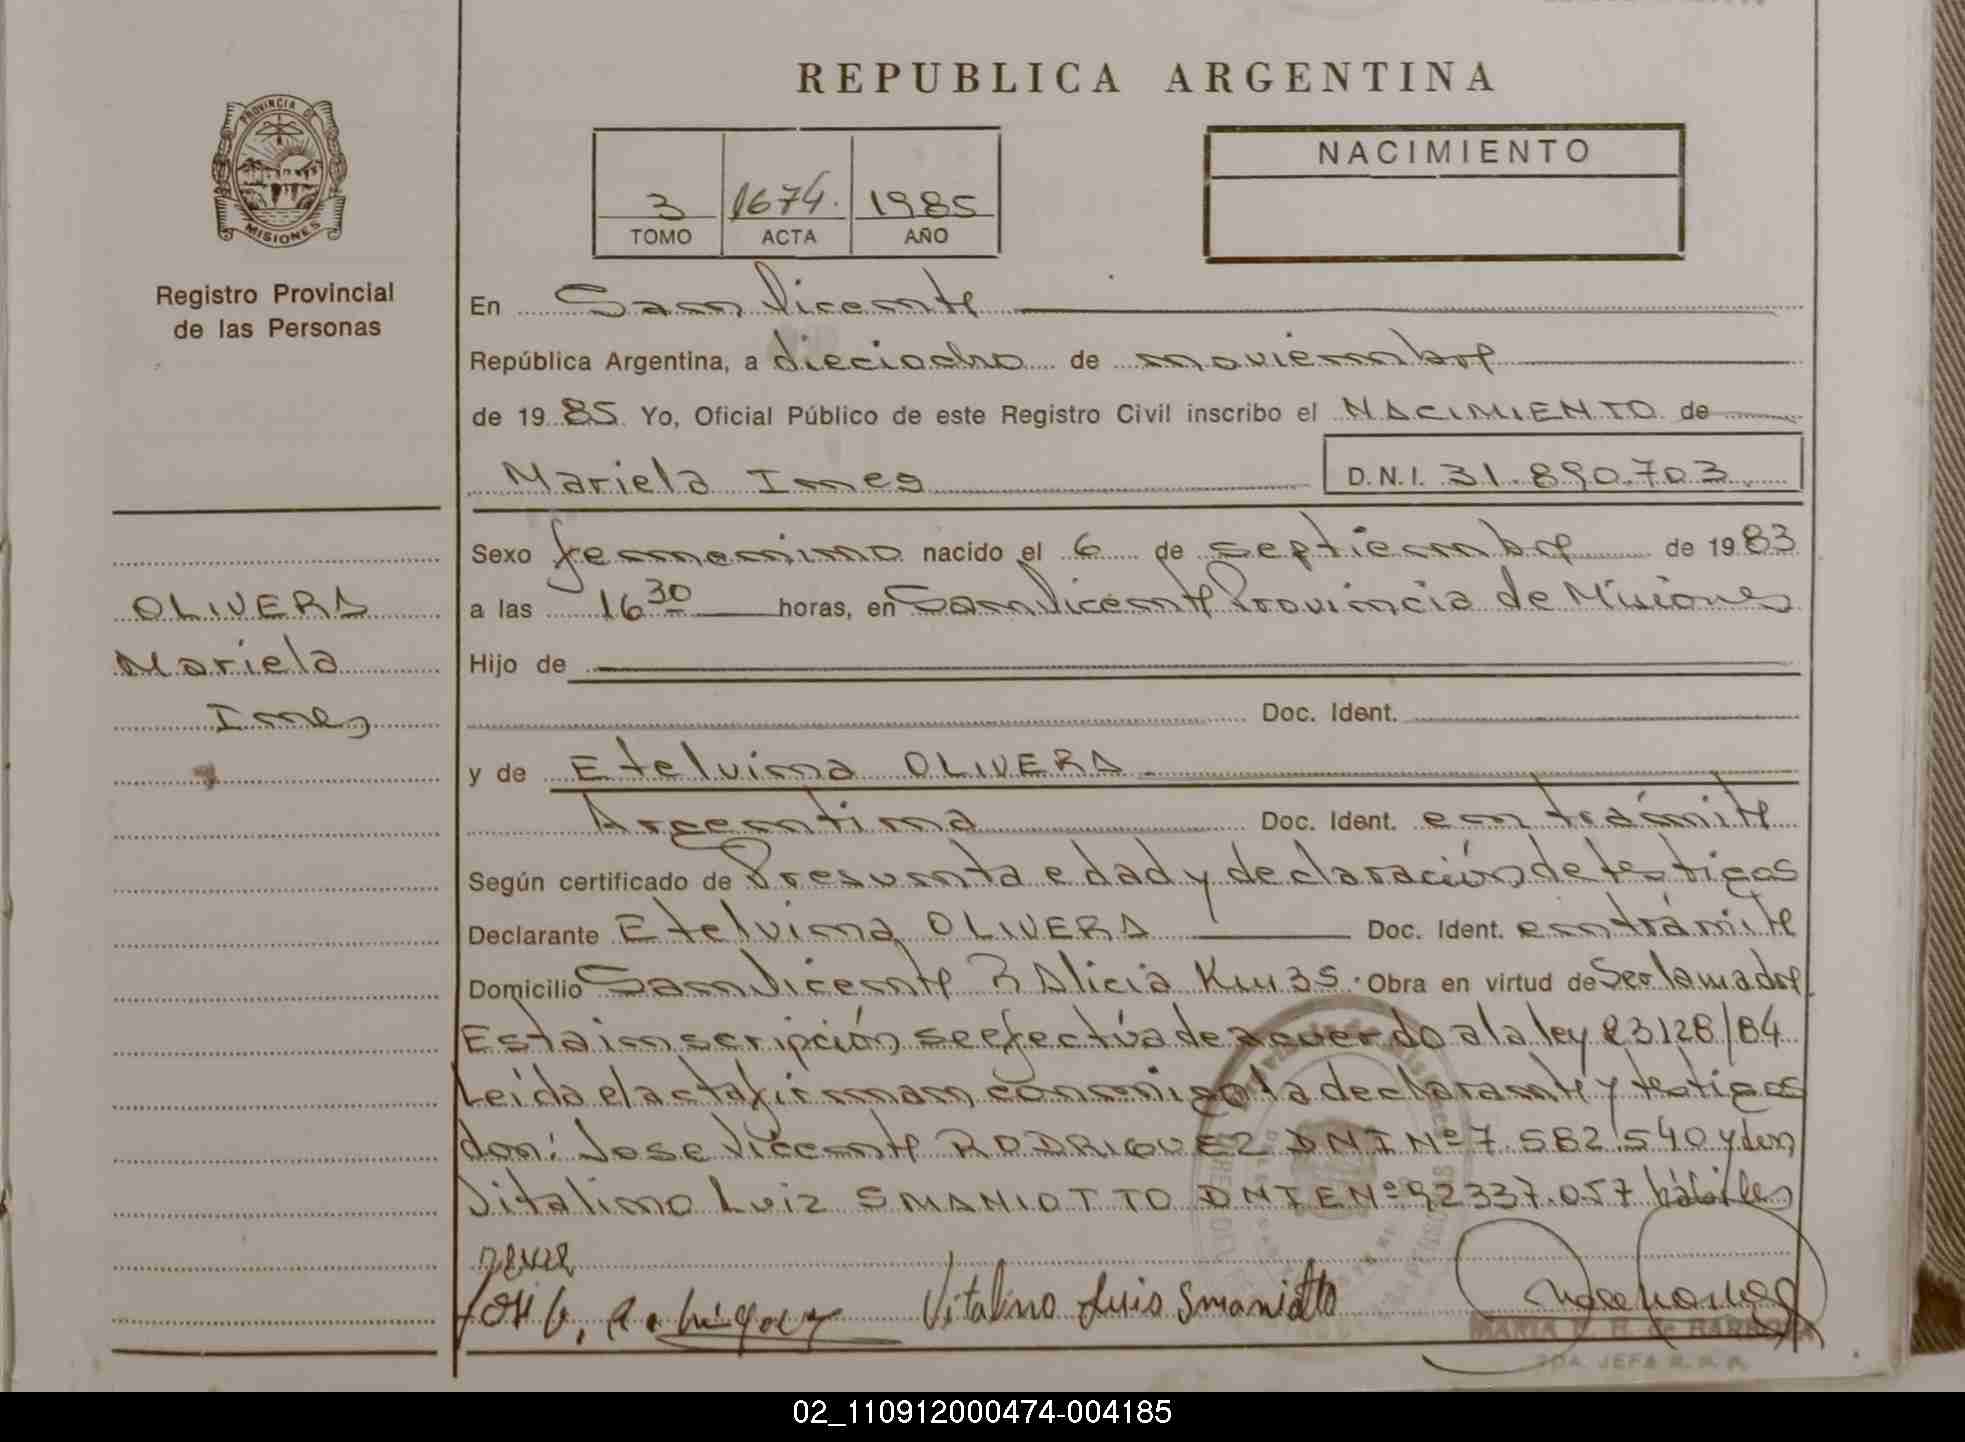 REPUBLICA ARGENTINA
PROVINCIA DE
MISIONES
Registro Provincial
de las Personas
3 1674. 1985
TOMO ACTA AÑO
NACIMIENTO
OLIVERA
Mariela
Ines
En San Vicente
República Argentina, a dieciocho de noviembre
de 1985 Yo, Oficial Público de este Registro Civil inscribo el NACIMIENTO de
Mariela Ines D.N.I. 31.890.703
Sexo femenino nacido el 6 de septiembre de 1983
a las 16 30 horas, en San Vicente Provincia de Misiones
Hijo de
Doc. Ident.
y de Etelvina OLIVERA
Argentina Doc. Ident. en trámite
Según certificado de Presunta edad y declaración de testigos
Declarante Etelvina OLIVERA Doc. Ident. en trámite
Domicilio San Vicente P. Alicia Km 35. Obra en virtud de Ser la madre
Esta inscripción se efectúa de acuerdo a la ley 23128/84
Leída el acta firman conmigo la declarante y testigos
don: Jose Vicente RODRIGUEZ DNI Nº 7.582.540 y don
Vitalino Luiz SMANIOTTO DNIE Nº 92337.057 hábiles
Vitalino Luis Smaniotto
MARIA E. H. de BARBOZA
JEFA R.P.P.
02_110912000474-004185